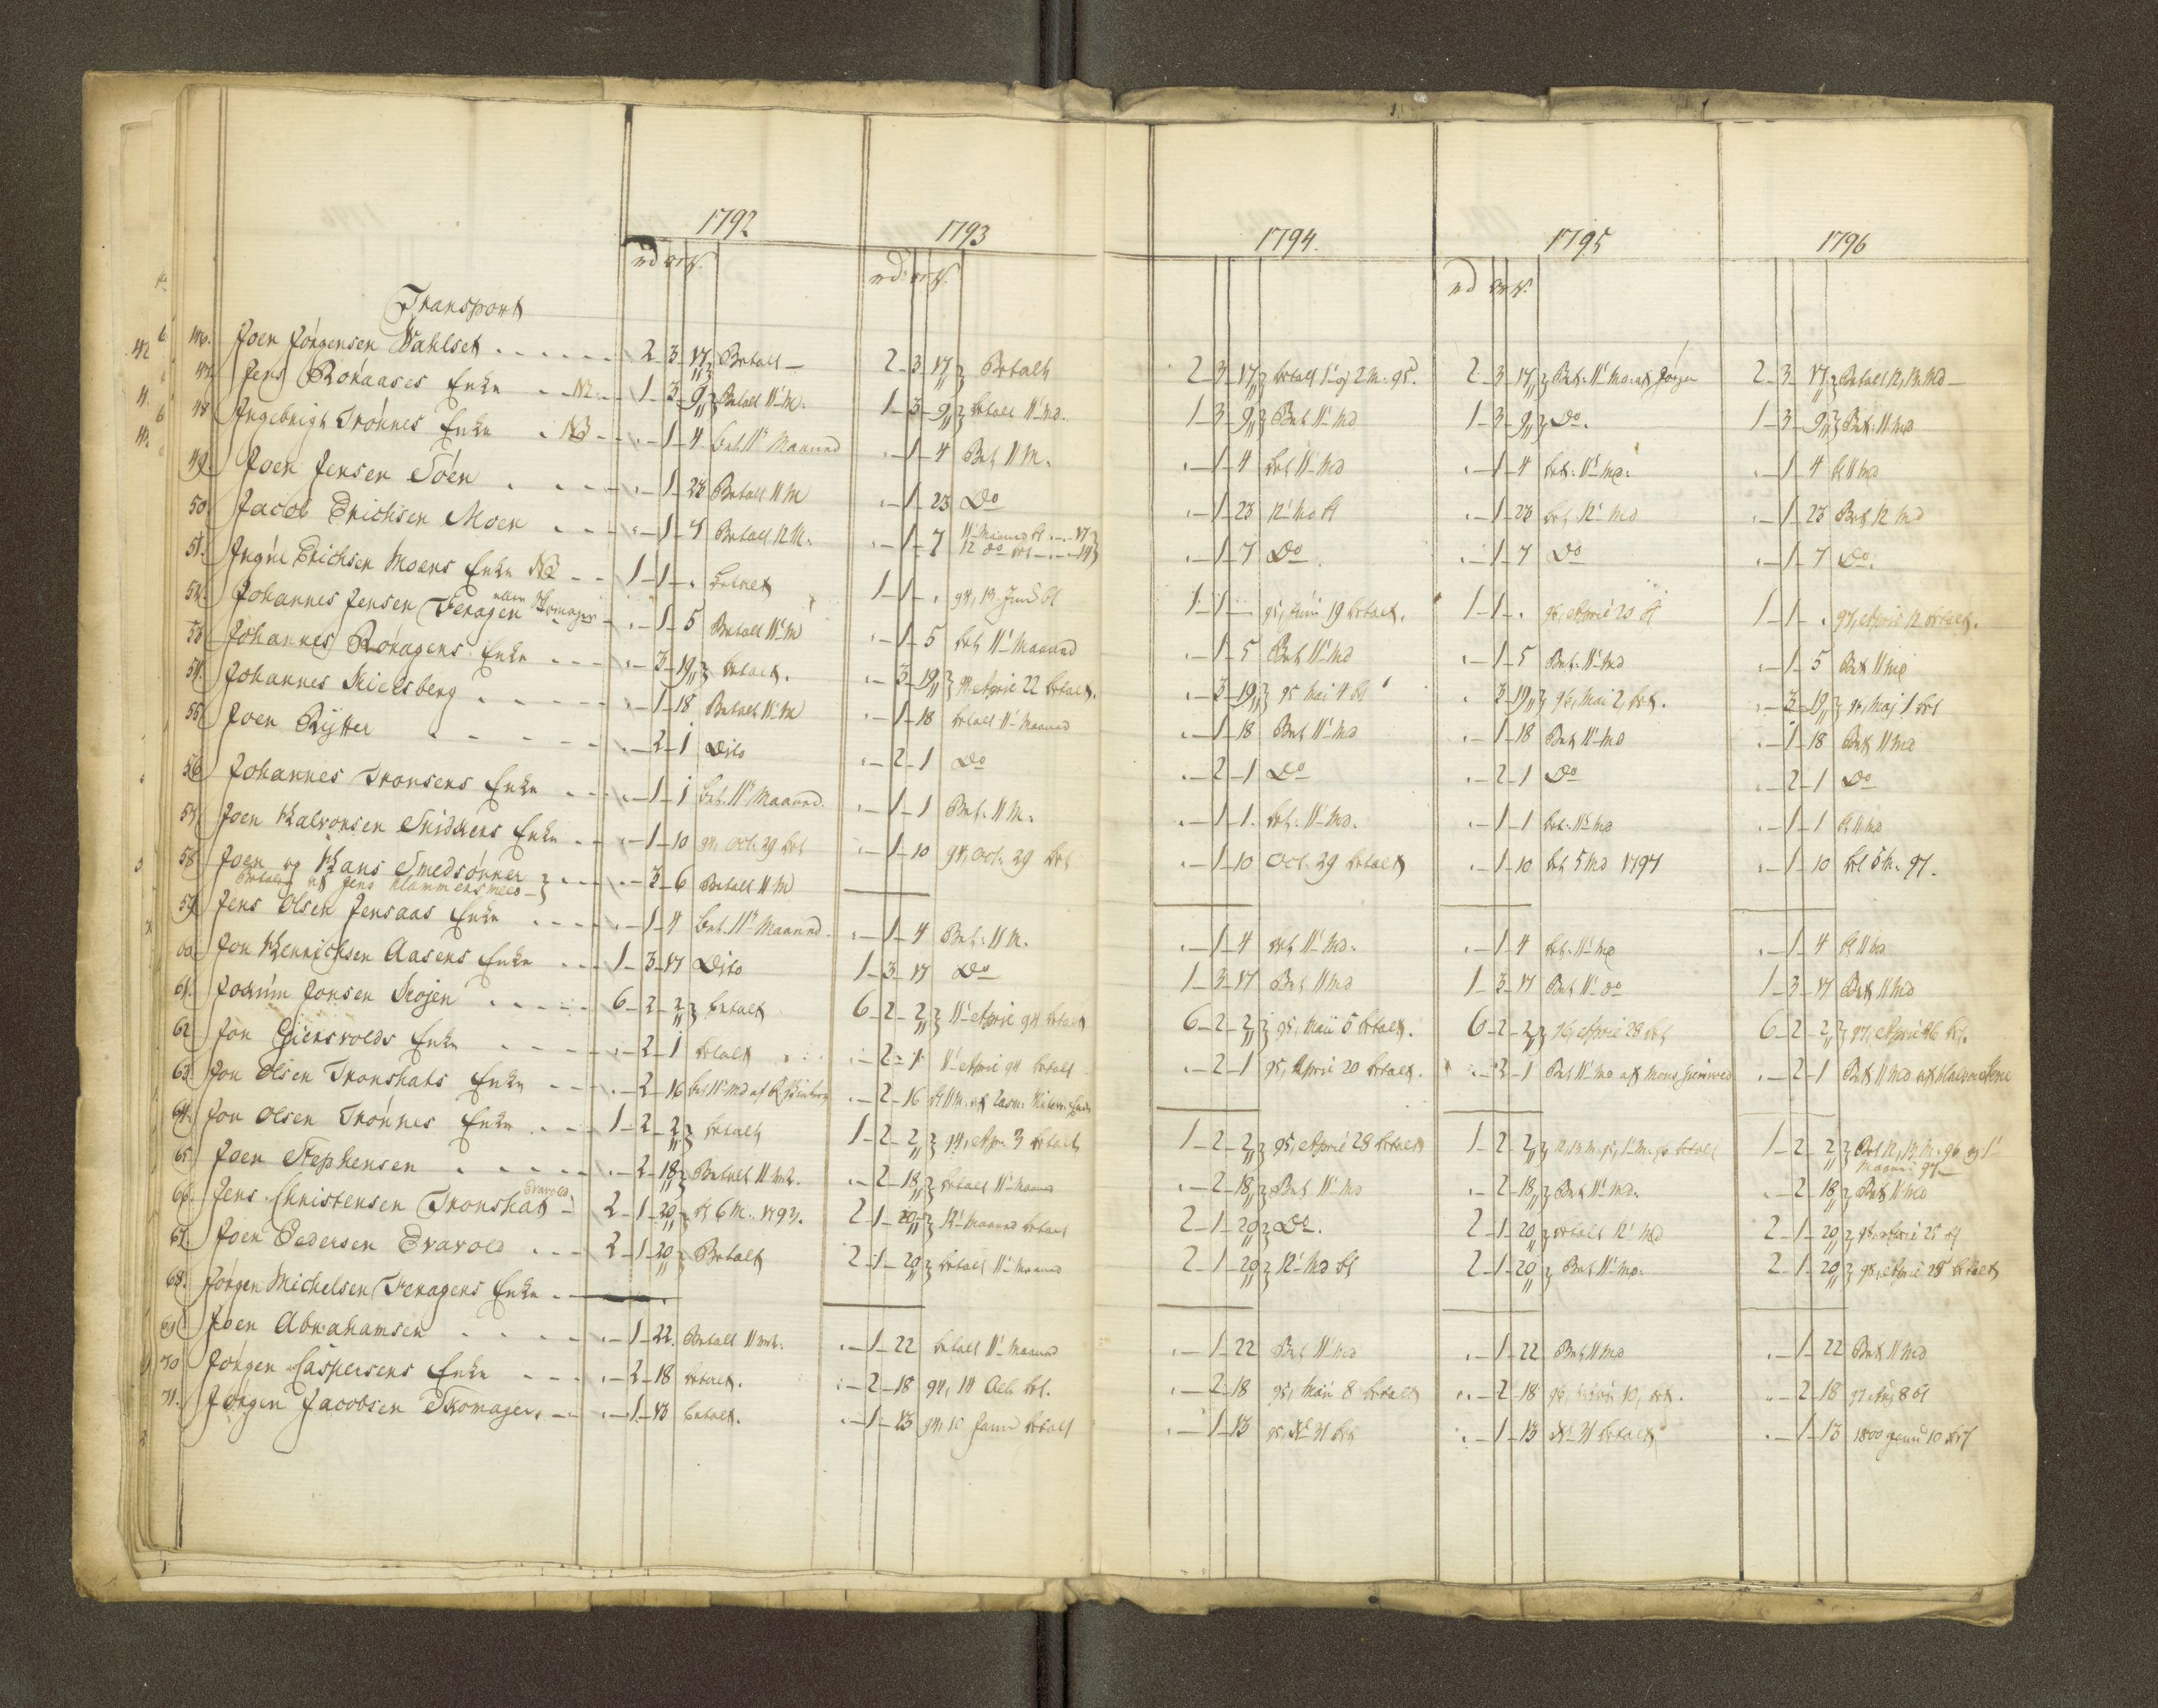 1792 1793 1794. 1795 1796
rd ort s. rd: ort s. rd ort s.
Transport
46. Joen Jörgensen Dahlset 2-3-17 Betalt 2-3-17 Betalt 2-3-17 betalt 1' og 2 M: 95. 2-3-17 Bet: 11' Md: af Jörgen 2-3-17 Betalt 12, 13 Md
47. Jens Roraases Enke NB 1-3-9 Betalt 11' M. 1-3-9 betalt 11' Md. 1-3-9 Bet 11' Md 1-3-9 Do. 1-3-9 Bet: 11 Md
48 Ingebrigt Trönnes Enke NB -1-4 bet. 11' Maaned -1-4 Bet 11 M. -1-4 bet 11' Md -1-4 bet: 11' Md: -1-4 bt 11 Md
49. Joen Jensen Töen -1-23 Betalt 11 M -1-23 Do -1-23 12' Md bt -1-23 bet 12' Md -1-23 Bet 12 Md
50. Jacob Erichsen Moen -1-7 Betalt 12 M. -1-7 11' Maaned bt 17 12 do bet 19 -1-7 Do -1-7 Do -1-7 Do.
51. Erichsen Moens Enke NB 1-1-. betalt 1-1-. 94, 13. Jun bt 1-1- 95, Juni 19 betalt. 1-1-. 96, April 20 bt 1-1-. 97, April 12 betalt.
52. Johannes Jensen Feragen eller Skomager -1-5 Betalt 11' M -1-5 bet 11' Maaned -1-5 Bet 11' Md -1-5 Bet: 11' Md -1-5 Bet 11 Md
53 Johannes Roragens Enke -3-19 betalt. -3-19 94, April 22 betalt. -3-19 95 Mai 4 bt -3-19 96, Mai 2, bet. -3-19 96, Maj 1 bet
54. Johannes Kiersberg -1-18 Betalt 11' M -1-18 betalt 11' Maaned -1-18 Bet 11' Md -1-18 Bet 11' Md -1-18 Bet 11 Md
55 Joen Rÿtter -2-1 Dito -2-1 Do -2-1 Do -2-1 Do -2-1 Do
56 Johannes Tronsens Enke -1-1 bet. 11' Maaned. -1-1 Bet: 11 M. -1-1. bet: 11' Md. -1-1 bet: 11' Md -1-1 bt 11 Md
57. Joen Halvorsen Enke -1-10 94, Oct. 29 bet -1-10 94, Oct. 29 bet -1-10 Oct. 29 betalt -1-10 bet 5 Md 1797 -1-10 bt 5 M. 97.
58 Joen og Hans Smedsönner -3-6 Betalt 11 M
betales af Jens
59. Jens Olsen Jensaas Enke -1-4 bet. 11' Maaned. -1-4 Bet: 11 M. -1-4 bet 11' Md. -1-4 bet: 11' Md -1-4 bt 11 Md
60. Jon Henrichsen Aasens Enke 1-3-17 Dito 1-3-17 Do 1-3-17 Bet 11 Md 1-3-17 Bet 11' do 1-3-17 Bet 11 Md
61. Jochum Jonsen Kojen 6-2-2 betalt 6-2-2 11' April 94 betalt 6-2-2 95, Maii 5 betalt. 6-2-2 96, April 28 bet 6-2-2 97, April 26 bt.
62. Jon Giersvolds Enke -2-1 betalt -2-1 1' April 94 betalt -2-1 95, April 20 betalt. -2-1 Bet 11' Md af Mons -2-1 Bet 11 Md af
63. Jon Olsen Tronshats Enke -2-16 bet 11' Md af -2-16 bt 11 M. af
64. Jon Olsen Trönnes Enke 1-2-2 betalt 1-2-2 94, Apr. 3 betalt 1-2-2 95, April 28 betalt 1-2-2 12, 13 M. 95, 1' M. 96 betalt 1-2-2 Bet 12, 13 M. 96 og 1' Maaned 97
65. Joen Stephensen -2-18 Betalt 11 Md. -2-18 betalt 11' Maaned -2-18 Bet 11' Md -2-18 Bet 11' Md. -2-18 Bet 11' Md
66. Jens Christensen Tronshat Evavold 2-1-20 bt 6 M. 1793. 2-1-20 12' Maaned betalt 2-1-20 Do. 2-1-20 betalt 12' Md 2-1-20 98 April 25 bt
67. Joen Pedersen Evavold 2-1-20 Betalt 2-1-20 betalt 11' Maaned 2-1-20 12' Md bt 2-1-20 Bet 11' Md. 2-1-20 98, April 28 betalt
68. Jörgen Michelsen Feragens Enke
69 Joen Abrahamsen -1-22. Betalt 11 Md. -1-22 betalt 11' Maaned -1-22 Bet 11' Md -1-22 Bet 11 Md -1-22 Bet 11 Md
70 Jörgen Caspersens Enke -2-18 betalt. -2-18 94, 14 Oct. bet. -2-18 95, Maii 8 betalt -2-18 96, 10, bet. -2-18 97 8 bt
71. Jörgen Jacobsen Skomager. -1-13 betalt. -1-13 94, 10 Janu betalt -1-13 95. 31 bet -1-13 31 betalt -1-13 1800 Janu 10 bet